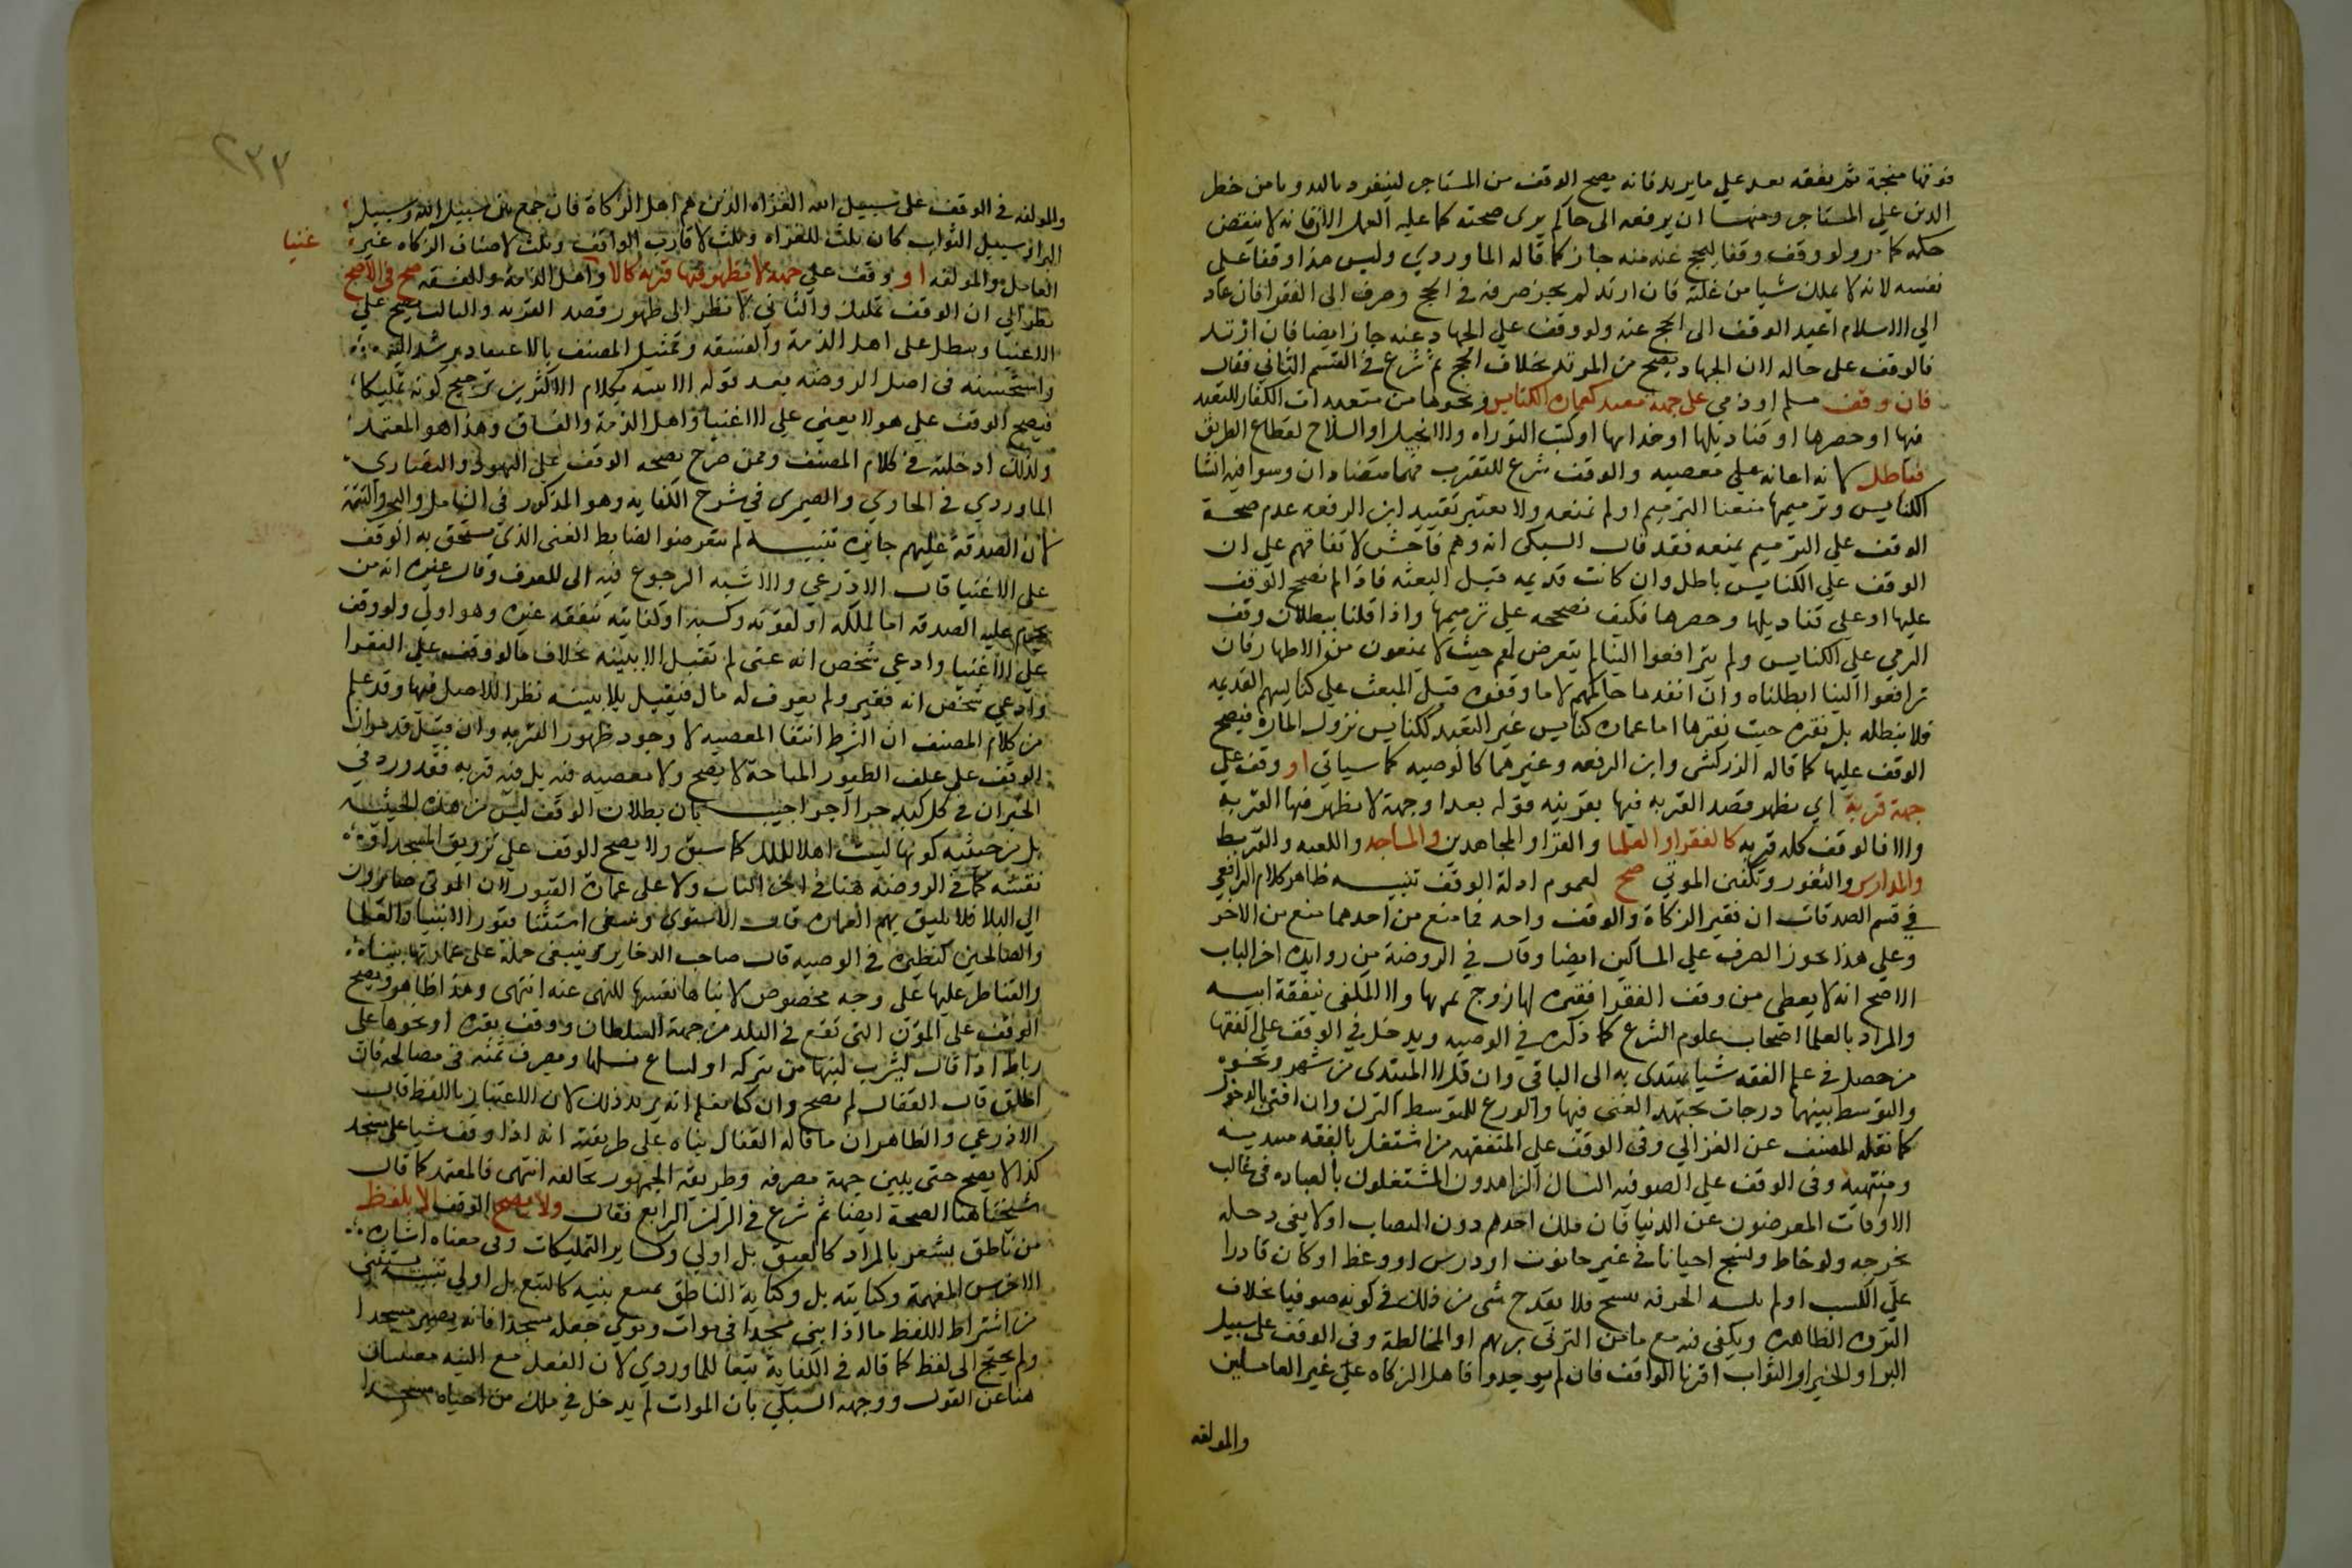 فوقها منجمة ثم يقفه بعد علي ما يريد فانه يصح الوقف من المستاجر لينفرد باليد ويامن خطر
الدين علي المستاجر ومنها ان يرفعه الى حاكم يرى صحته كما عليه العمل الان فانه لا ينقض
حكمه كما مر ولو وقف وقفا ليحج عنه منه جاز كما قاله الماوردي وليس هذا وقفا على
نفسه لانه لا يملك شيا من غلته فان ارتد لم يجز صرفه في الحج وصرف الى الفقرا فان عاد
الي الاسلام اعيد الوقف الى الحج عنه ولو وقف علي الجهاد عنه جاز ايضا فان ارتد
فالوقف على حاله لان الجهاد يصح من المرتد بخلاف الحج ثم شرع في القسم الثاني فقال
فان وقف مسلم او ذمي على جهة معصية كعمارة الكنايس ونحوها من متعبدات الكفار للتعبد
فيها او حصرها او قناديلها او خدامها او كتب التوراه والانجيل او السلاح لقطاع الطريق
فباطل لانه اعانه علي معصيه والوقف شرع للتقرب فهما متضادان وسوا فيه انشا
الكنايس وترميمها منعنا الترميم او لم نمنعه ولا يعتبر تقييد ابن الرفعه عدم صحة
الوقف علي الترميم بمنعه فقد قال السبكى انه وهم فاحش لاتفاقهم علي ان
الوقف علي الكنايس باطل وان كانت قديمه قبل البعثه فاذا لم نصحح الوقف
عليها او علي قناديلها وحصرها فكيف نصححه علي ترميمها واذا قلنا ببطلان وقف
الذمي علي الكنايس ولم يترافعوا الينا لم يتعرض لهم حيث لا يمنعون من الاظهار فان
ترافعوا الينا ابطلناه وان انفذه حاكمهم لا ما وقفوه قبل المبعث علي كنايسهم القديمه
فلا نبطله بل نقره حيث نقرها اما عمارة كنايس غير التعبد ككنايس نزول المارة فيصح
الوقف عليها كما قاله الزركشى وابن الرفعه وغيرهما كالوصيه كما سياتي او وقف علي
جهة قربة اي يظهر قصد القربه فيها بقرينه قوله بعد او جهة لا يظهر فيها القربه
والا فالوقف كله قربه كالفقرا والعلما والقرا والمجاهدين والمساجد والكعبه والربط
والمدارس والثغور وتكفين الموتي صح لعموم ادلة الوقف تنبيه ظاهر كلام الرافعي
في قسم الصدقات ان فقير الزكاة والوقف واحد فما منع من احدهما منع من الاخر
وعلي هذا يجوز الصرف علي المساكين ايضا وقال في الروضة من زوايده اخر الباب
الاصح انه لا يعطى من وقف الفقرا فقيره لها زوج يمونها ولا المكفى بنفقة ابيه
والمراد بالعلما اصحاب علوم الشرع كما ذكره في الوصيه ويدخل في الوقف علي الفقها
من حصل في علم الفقه شيا يهتدى به الى الباقي وان قل لا المبتدى من شهر ونحوه
والتوسط بينهما درجات يجتهد المفتى فيها والورع للمتوسط الترك وان افتى بالدخول
كما نقله المصنف عن الغزالي وفى الوقف علي المتفقهه من اشتغل بالفقه مبتديه
ومنتهيه وفى الوقف علي الصوفيه النساك الزاهدون المشتغلون بالعباده في غالب
الاوقات المعرضون عن الدنيا فان ملك احدهم دون النصاب او لا يفى دخله
بخرجه ولو خاط ونسج احيانا في غير حانوت او درس او وعظ او كان قادرا
علي الكسب او لم يلبسه الخرقه شيخ فلا يقدح شى من ذلك في كونه صوفيا بخلاف
الثروة الظاهره ويكفى فيه مع ما مر التزيى بزيهم او المخالطة وفى الوقف علي سبيل
البر او الخير او الثواب اقربا الواقف فان لم يوجدوا فاهل الزكاه علي غير العاملين
والمولفه
٢٣٣
والمولفه في الوقف على سبيل الله الغزاه الذين هم اهل الزكاة فان جمع بين سبيل الله وسبيل
البر او سبيل الثواب كان ثلث للغزاه وثلث لاقارب الواقف وثلث لاصناف الزكاه غير
العامل والمولفه او وقف علي جهة لا يظهر فيها قربه كالا واهل الذمة والفسقه صح في الاصح
غنيا
نظرا الي ان الوقف تمليك والثاني لا نظر الى ظهور قصد القربه والثالث يصح علي
الاغنيا ويبطل على اهل الذمة والفسقه وتمثيل المصنف بالاغنيا قد يرشد اليه
واستحسنه في اصل الروضه بعد قوله الاشبه بكلام الاكثرين ترجيح كونه تمليكا
فيصح الوقف علي هولا يعني علي الاغنيا واهل الذمة والفساق وهذا هو المعتمد
ولذلك ادخلته في كلام المصنف وممن صرح بصحة الوقف علي اليهود والنصارى
الماوردي في الحاوي والصيمرى في شرح الكفايه وهو المذكور في الشامل والبحر والتتمة
لان الصدقة عليهم جايزه تنبيه لم يتعرضوا لضابط الغنى الذي يستحق به الوقف
على الاغنيا قال الاذرعي والاشبه الرجوع فيه الى العرف وقال غيره انه من
يحرم عليه الصدقه اما لملكه او لقوته وكسبه او كفايته بنفقه غيره وهو اولي ولو وقف
علي الاغنيا وادعي شخص انه غنى لم تقبل الا ببينه بخلاف ما لو وقف علي الفقرا
وادعي شخص انه فقير ولم يعرف له مال فيقبل بلا بينه نظرا للاصل فيهما وقد علم
من كلام المصنف ان الشرط انتفا المعصيه لا وجود ظهور القربه وان قيل قد مر ان
الوقف على علف الطيور المباحة لا يصح ولا معصيه فيه بل فيه قربه فقد ورد في
الخبر ان في كل كبد حرا اجرا اجيب بان بطلان الوقف ليس من هذه الحيثيه
بل من حيثيه كونها ليست اهلا للملك كما سبق ولا يصح الوقف علي تزويق المسجد او
نقشه كما في الروضة هنا في اخر الباب ولا على عمارة القبور لان الموتى صايرون
الى البلا فلا يليق بهم العماره قال الاسنوي وينبغى استثنا قبور الانبيا والعلما
والصالحين كنظيره في الوصيه قال صاحب الذخاير وينبغى حمله على عمارتها ببناء
والقناطر عليها على وجه مخصوص لا بناها نفسها للنهى عنه انتهى وهذا ظاهر ويصح
الوقف على المؤن التى تقع في البلد من جهة السلطان ووقف بقره او نحوها على
رباط اذا قال ليشرب لبنها من نزله او ليباع نسلها ويصرف ثمنه في مصالحه فان
اطلق قال القفال لم يصح وان كنا نعلم انه يريد ذلك لان الاعتبار باللفظ قال
الاذرعي والظاهر ان ما قاله القفال بناه على طريقته انه اذا وقف شيا على مسجد
كذا لا يصح حتى يبين جهة مصرفه وطريقة الجمهور تخالفه انتهى فالمعتمد كما قال
شيخنا هنا الصحة ايضا ثم شرع في الركن الرابع فقال ولا يصح الوقف الا بلفظ
من ناطق يشعر بالمراد كالعتق بل اولي وكساير التمليكات وفى معناه اشاره
الاخرس المفهمة وكتابته بل وكتابة الناطق مع نيته كالبيع بل اولي تنبيه يستثنى
من اشتراط اللفظ ما اذا بنى مسجدا في موات ونوى جعله مسجدا فانه يصير مسجدا
ولم يحتج الى لفظ كما قاله في الكفاية تبعا للماوردي لان الفعل مع النيه مغنيان
هنا عن القول ووجهه السبكي بان الموات لم يدخل في ملك من احياه مسجدا